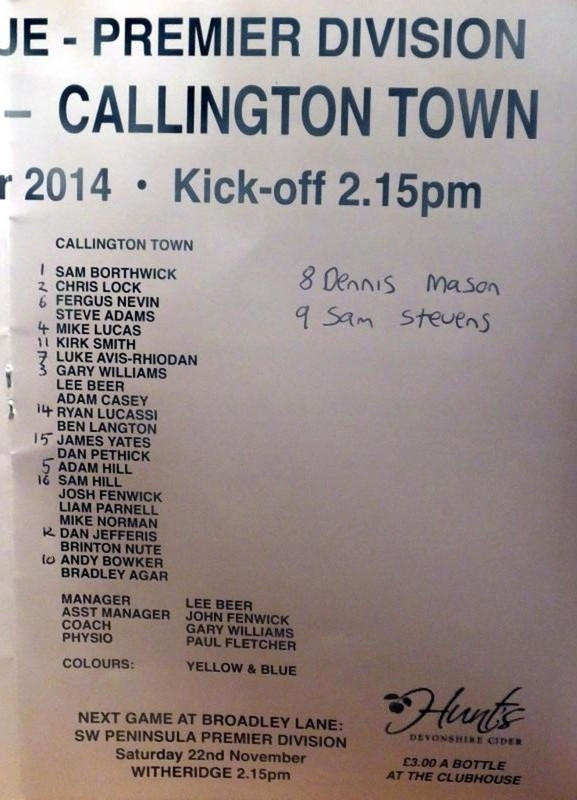 JE - PREMIER DIVISION
– CALLINGTON TOWN
r 2014 • Kick-off 2.15pm
CALLINGTON TOWN
1 SAM BORTHWICK
2 CHRIS LOCK
6 FERGUS NEVIN
STEVE ADAMS
4 MIKE LUCAS
11 KIRK SMITH
7 LUKE AVIS-RHIODAN
3 GARY WILLIAMS
LEE BEER
ADAM CASEY
14 RYAN LUCASSI
BEN LANGTON
15 JAMES YATES
DAN PETHICK
5 ADAM HILL
16 SAM HILL
JOSH FENWICK
LIAM PARNELL
MIKE NORMAN
12 DAN JEFFERIS
BRINTON NUTE
10 ANDY BOWKER
BRADLEY AGAR
8 Dennis Mason
9 Sam Stevens
MANAGER LEE BEER
ASST MANAGER JOHN FENWICK
COACH GARY WILLIAMS
PHYSIO PAUL FLETCHER
COLOURS: YELLOW & BLUE
NEXT GAME AT BROADLEY LANE:
SW PENINSULA PREMIER DIVISION
Saturday 22nd November
WITHERIDGE 2.15pm
Hunt's
DEVONSHIRE CIDER
£3.00 A BOTTLE
AT THE CLUBHOUSE